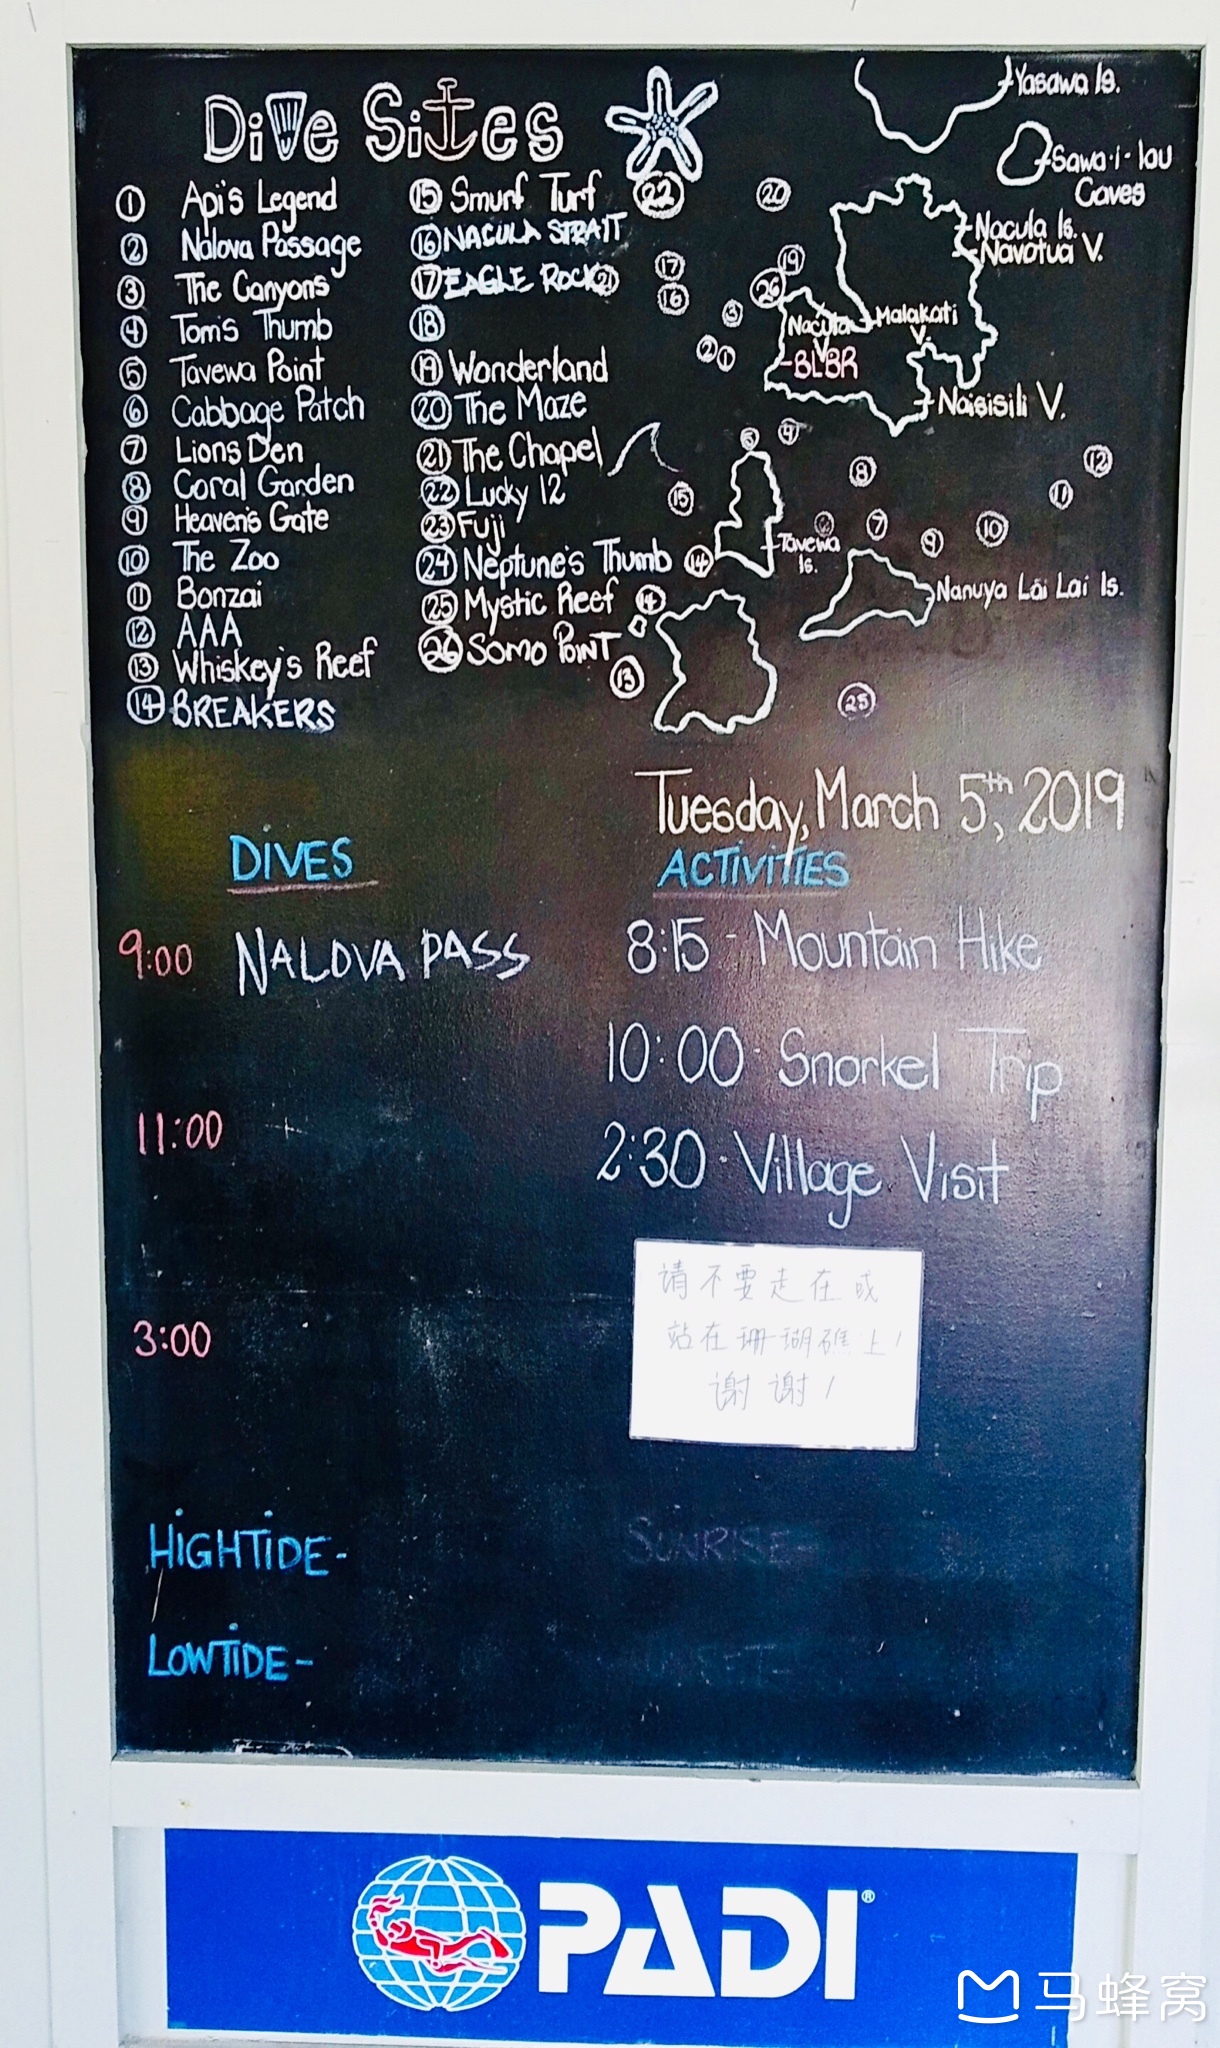 Dive Sites
① Api's Legend
② Nalova Passage
③ The Canyons
④ Tom's Thumb
⑤ Tavewa Point
⑥ Cabbage Patch
⑦ Lions Den
⑧ Coral Garden
⑨ Heaven's Gate
⑩ The Zoo
⑪ Bonzai
⑫ AAA
⑬ Whiskey's Reef
⑭ BREAKERS
⑮ Smurf Turf
⑯ NACULA STRAIT
⑰ EAGLE ROCK
⑱
⑲ Wonderland
⑳ The Maze
㉑ The Chapel
㉒ Lucky 12
㉓ Fuji
㉔ Neptune's Thumb
㉕ Mystic Reef
㉖ SOMO POINT
Yasawa Is.
Sawa-i-lau
Caves
㉒
⑳
Nacula Is.
Navotua V.
⑲
⑰
㉖
⑯
③
Malakati
V.
Nacula
V
② ①
BLBR
Naisisili V.
⑤ ④
⑧
⑫
⑮
⑪
⑦
⑨
⑩
Tavewa
Is.
⑭
Nanuya Lai Lai Is.
⑭
⑬
㉕
Tuesday, March 5th, 2019
DIVES
ACTIVITIES
9:00 NALOVA PASS
8:15 - Mountain Hike
10:00 - Snorkel Trip
11:00
2:30 - Village Visit
3:00
请不要走在或
站在珊瑚礁上!
谢谢!
HIGHTIDE-
SUNRISE-
LOWTIDE-
PADI®
马蜂窝